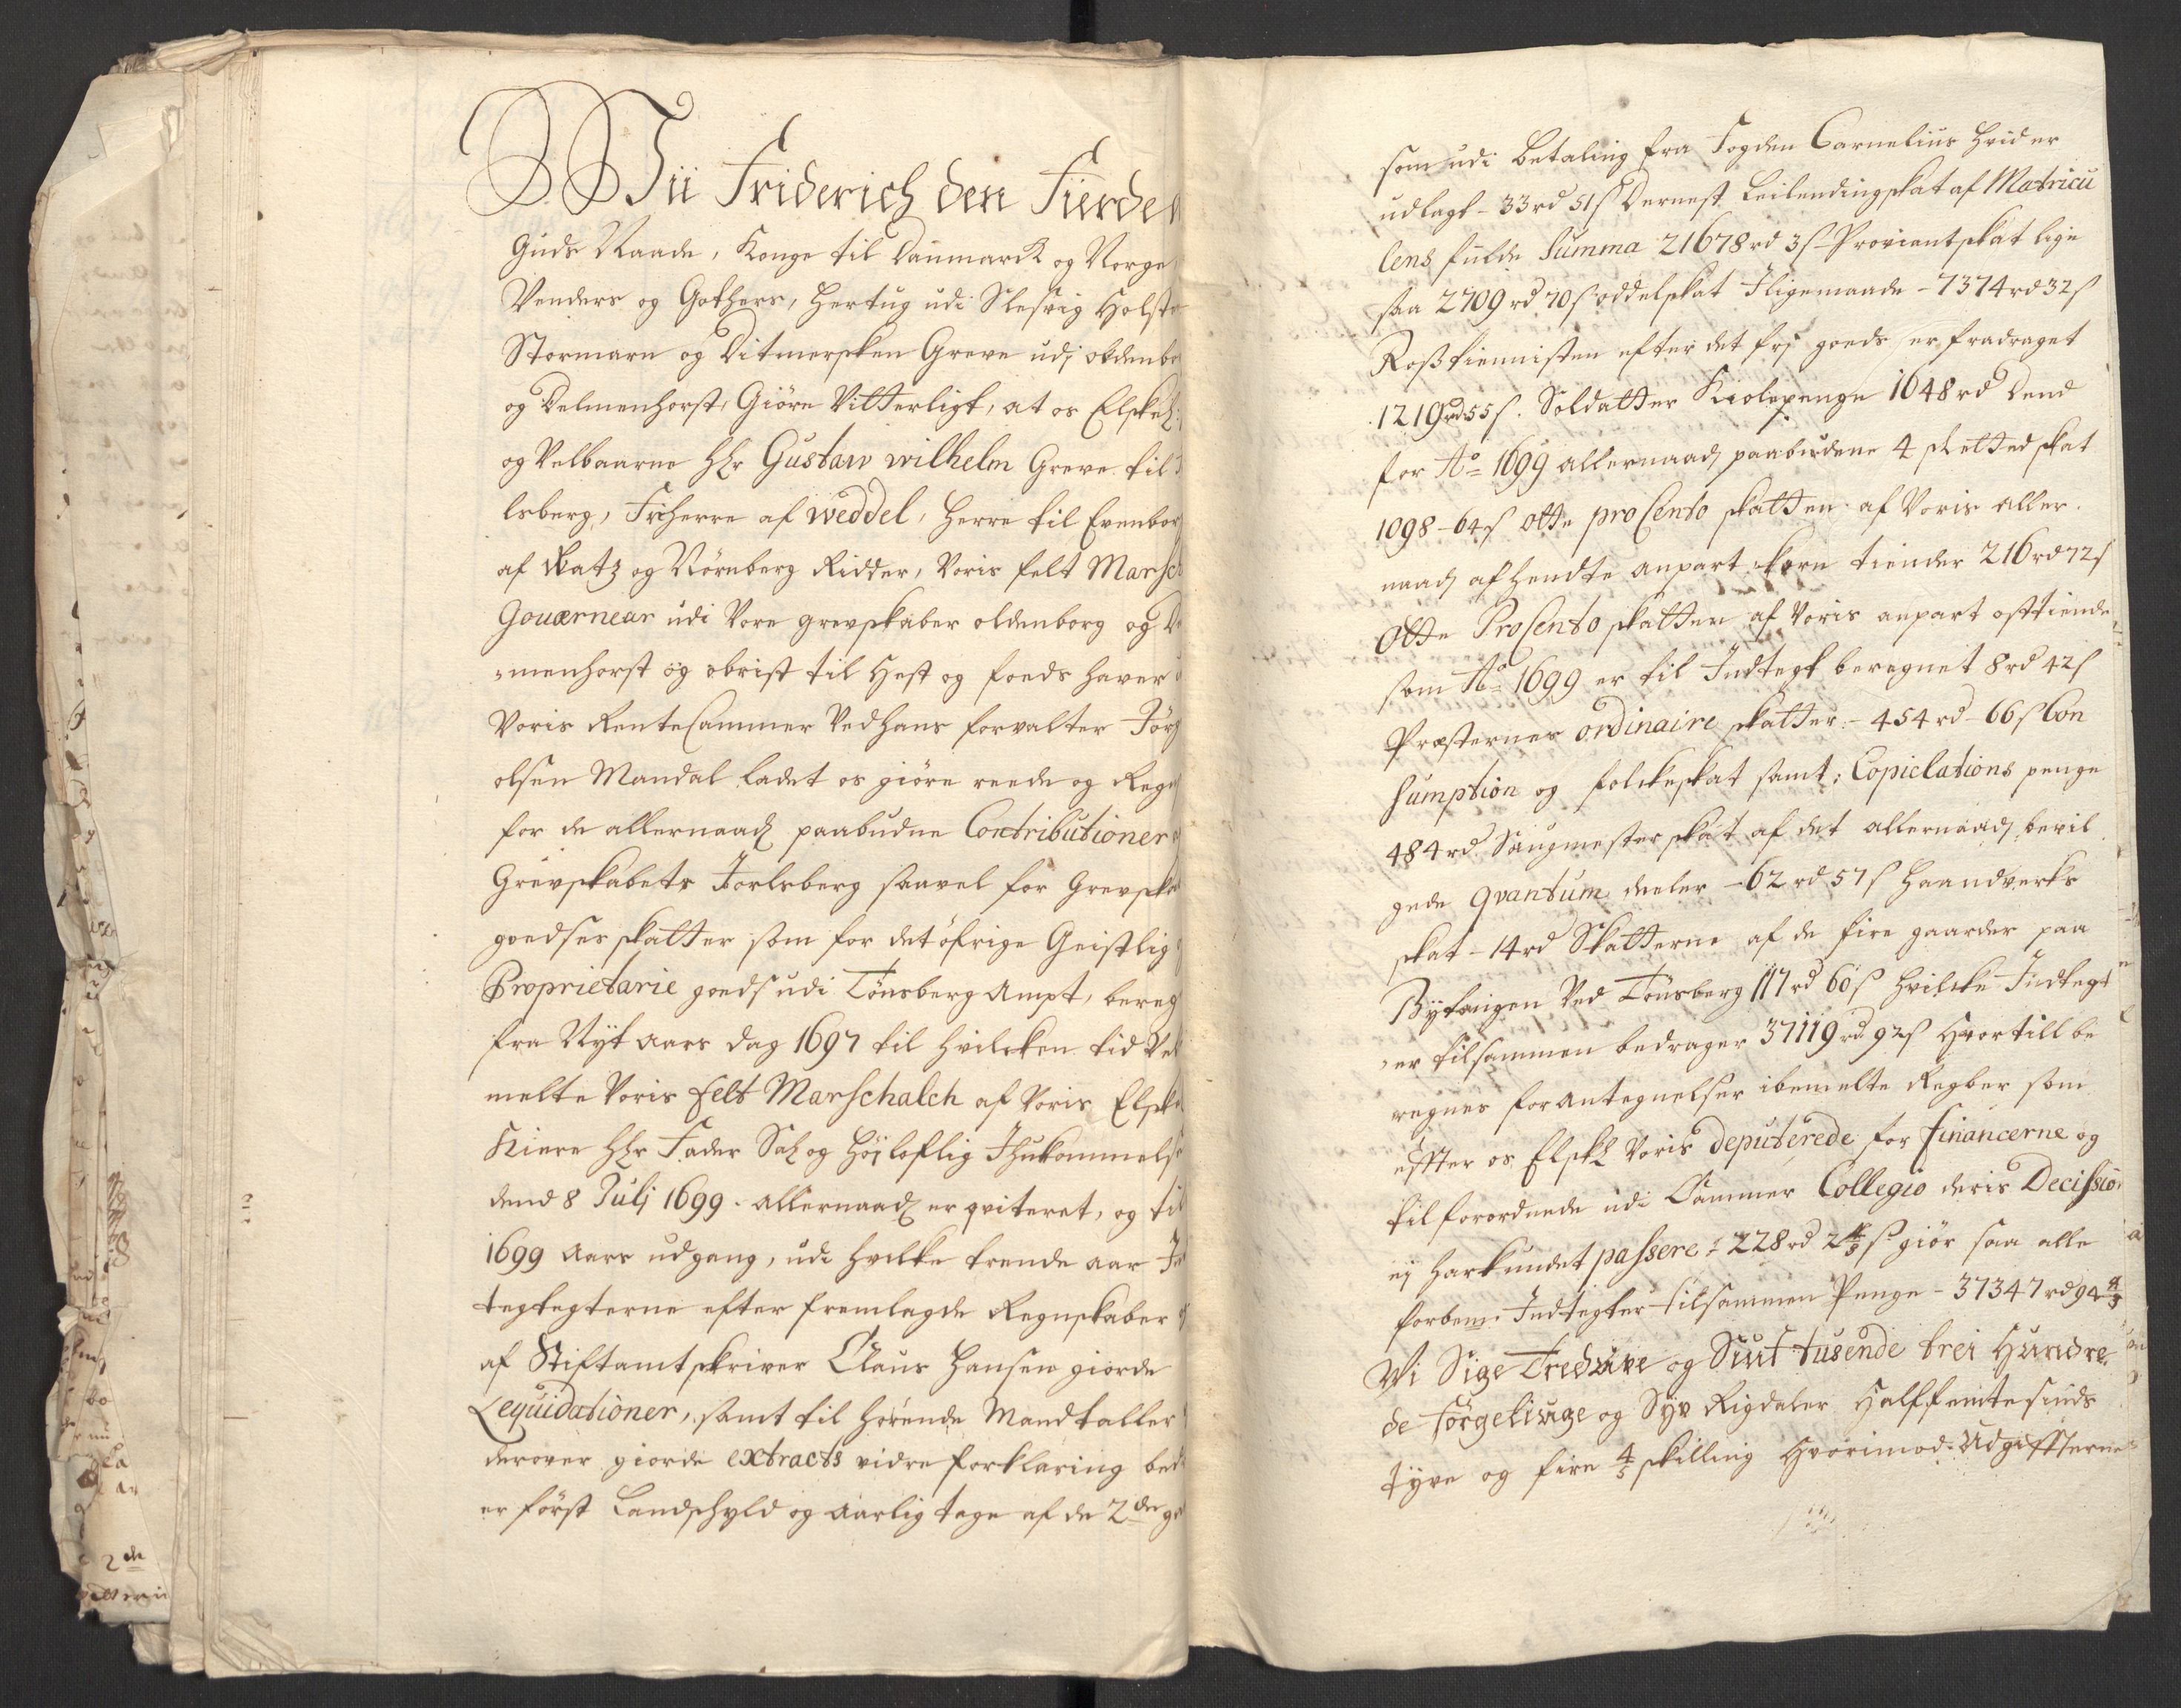 Wii Friderich den Fierde
Guds Naade, Konge til Danmarck og Norge
Venders og Gothers, Hertug udi Slesvig Holste
Stormarn og Ditmersken Greve udj oldenbo
og Delmenhorst, Giöre Vitterligt, at os Elskel:
og Velbaarne Hr Gustaw wilhelm Greve til J
lsberg, Friherre af Weddel, Herre til Evenbor
af Katz og Nörnberg Ridder, Voris felt Marsch
Gouærnear udi Vore grevskaber oldenborg og De
menhorst og obrist til Hest og foeds haver
Voris RenteCammer Ved Hans forvalter Jör
olsen Mandal ladet os giöre rede og Regn
for de allernaad paabudne Contributioner
Grevskabets Jarlsberg saavel for Grevska
goedses skatter som for det öfrige Geistlig
Proprietarie goeds udi Tönsberg Ampt, bereg
fra Nyt Aars dag 1697 til hvilcken tid Vel
melte Voris Felt Marschalch af Voris Elsk
Kiere Hr Fader Sal og Höjloflig Ihukommelse
dend 8 Julj 1699. allernaad er qviteret, og til
1699 Aars udgang, udi hvilke trende aar In
tegtegterne efter fremlagde Regnskaber
af Stiftamtskriver Claus Hansen giorde
Leqvidationer, samt til hörende Mandtaller
derover giorde extracts vidre forklaring bed
er först Landschyld og Aarlig tage af de 2de g
som udi betaling fra Fogden Carnelius Hvid er
udlagt - 33rd 51s Dernest Leilendingskat af Matricu
lens fulde Summa 21678rd 3s Proviantskat lige
saa 2709rd 70s oddelskat Jligemaade - 7374rd 32s
Rostienisten efter det frj goeds er fradraget
1219rd 55s. Soldatter Kiolepenge 1648rd Dend
for Ao 1699 allernaad paabudene 4 slettedskat
1098 - 64s otte pro Cento skatten af Voris aller
naad afhendte anpart korn tiender 216rd 72s
Otte ProCento skatten af Voris anpart osttiende
som Ao 1699 er til Indtegt beregnet 8rd 42s
Præsternes ordinaire skatter - 454rd - 66s Con
sumption og folckeskat samt: Copiclations penge
484rd Saugmesterskat af det allernaad bevil
gede qvantum deeler - 62rd 57s Haandverks
skat - 14rd Skatterne af de fire gaarder paa
Bytaigen Ved Tönsberg 117rd 60s hvilcke Indtegt
er tilsammen bedrager 37119rd 92s Hvortill be
regnes for Antegnelser ibemelte Regber som
effter os Elskl Voris deputerede for financerne og
tilforordnede udi Cammer Collegio deris Decissio
ej har kundet passere : 228rd 2 4/5 s giör saa alle
forbem: Indtegter tilsammen Penge - 37347rd 94 4/5
Wi Sige Tredive og Siuf tusende trei Hundre
de förgetiuge og Syv Rigdaler Halffemtesinds
tyve og fire 4/5 skilling Hvorimod Udgiffterne